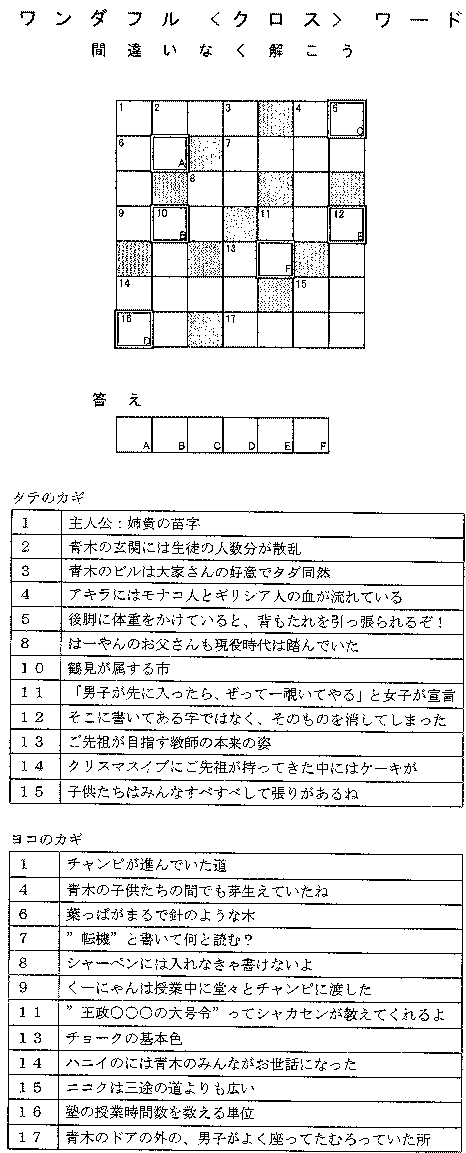 ワンダフル〈クロス〉ワード
間違いなく解こう
1 2 3 4 5 C
6 A 7
8
9 10 B 11 12 E
13 F
14 15
16 D 17
答え
A B C D E F
タテのカギ
1 主人公：姉貴の苗字
2 青木の玄関には生徒の人数分が散乱
3 青木のビルは大家さんの好意でタダ同然
4 アキラにはモナコ人とギリシア人の血が流れている
5 後脚に体重をかけていると、背もたれを引っ張られるぞ！
8 はーやんのお父さんも現役時代は踏んでいた
10 鶴見が属する市
11 「男子が先に入ったら、ぜってー覗いてやる」と女子が宣言
12 そこに書いてある字ではなく、そのものを消してしまった
13 ご先祖が目指す教師の本来の姿
14 クリスマスイブにご先祖が持ってきた中にはケーキが
15 子供たちはみんなすべすべして張りがあるね
ヨコのカギ
1 チャンピが進んでいた道
4 青木の子供たちの間でも芽生えていたね
6 葉っぱがまるで針のような木
7 ”転機”と書いて何と読む？
8 シャーペンには入れなきゃ書けないよ
9 くーにゃんは授業中に堂々とチャンピに渡した
11 ”王政〇〇〇の大号令”ってシャカセンが教えてくれるよ
13 チョークの基本色
14 ハニイのには青木のみんながお世話になった
15 ニニクは三途の道よりも広い
16 塾の授業時間数を数える単位
17 青木のドアの外の、男子がよく座ってたむろっていた所